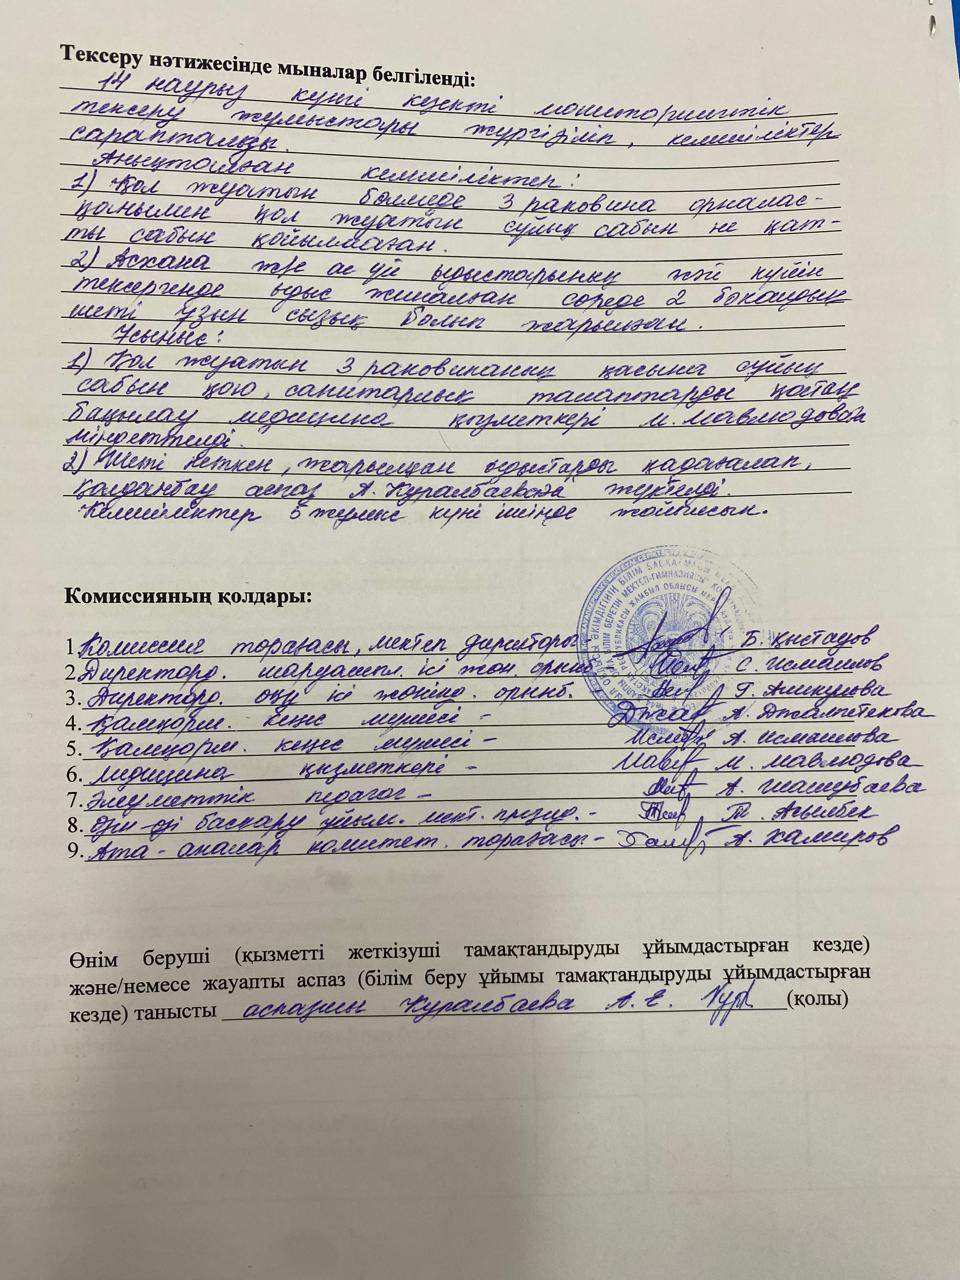 Тексеру нәтижесінде мыналар белгіленді:
14 наурыз күнгі кезекті мониторингтік
тексеру жұмыстары жүргізіліп, кемшіліктер
сарапталды.
Анықталған кемшіліктер:
1) Қол жуатын бөлмеде 3 раковина орналас-
қанымен қол жуатын сұйық сабын не қат-
ты сабын қойылмаған.
2) Асхана және ас үй ыдыстарының жай күйін
тексергенде ыдыс жиналған сөреде 2 бокалдың
шеті ұзын сызық болып жарылған.
Ұсыныс:
1) Қол жуатын 3 раковинаның қасына сұйық
сабын қою, санитарлық талаптарды қатаң
бақылау медицина қызметкері М. Мавлюдоваға
міндеттелді.
2) Шеті кеткен, жарылған ыдыстарды қадағалап,
қолданбау аспаз А. Куралбаеваға жүктелді.
Кемшіліктер 5 жұмыс күні ішінде жойылсын.
Комиссияның қолдары:
1. Комиссия төрағасы, мектеп директоры - Б. Қыстауов
2. Директорд. шаруашыл. ісі жөн. орынб С. Исмаилов
3. Директорд. оқу ісі жөнінд. орынб. Г. Ашкулова
4. Қамқорш. кеңес мүшесі - А. Джалпетекова
5. Қамқорш. кеңес мүшесі - А. Исмаилова
6. Медицина қызметкері - М. Мавлюдова
7. Әлеуметтік педагог - А. Шашубаева
8. Өзін-өзі басқару ұйым. мект. презид. - Т. Асылбек
9. Ата-аналар комитет. төрағасы - А. Хамиров
Өнім беруші (қызметті жеткізуші тамақтандыруды ұйымдастырған кезде)
және/немесе жауапты аспаз (білім беру ұйымы тамақтандыруды ұйымдастырған
кезде) танысты аспазшы Куралбаева А. Е. (қолы)